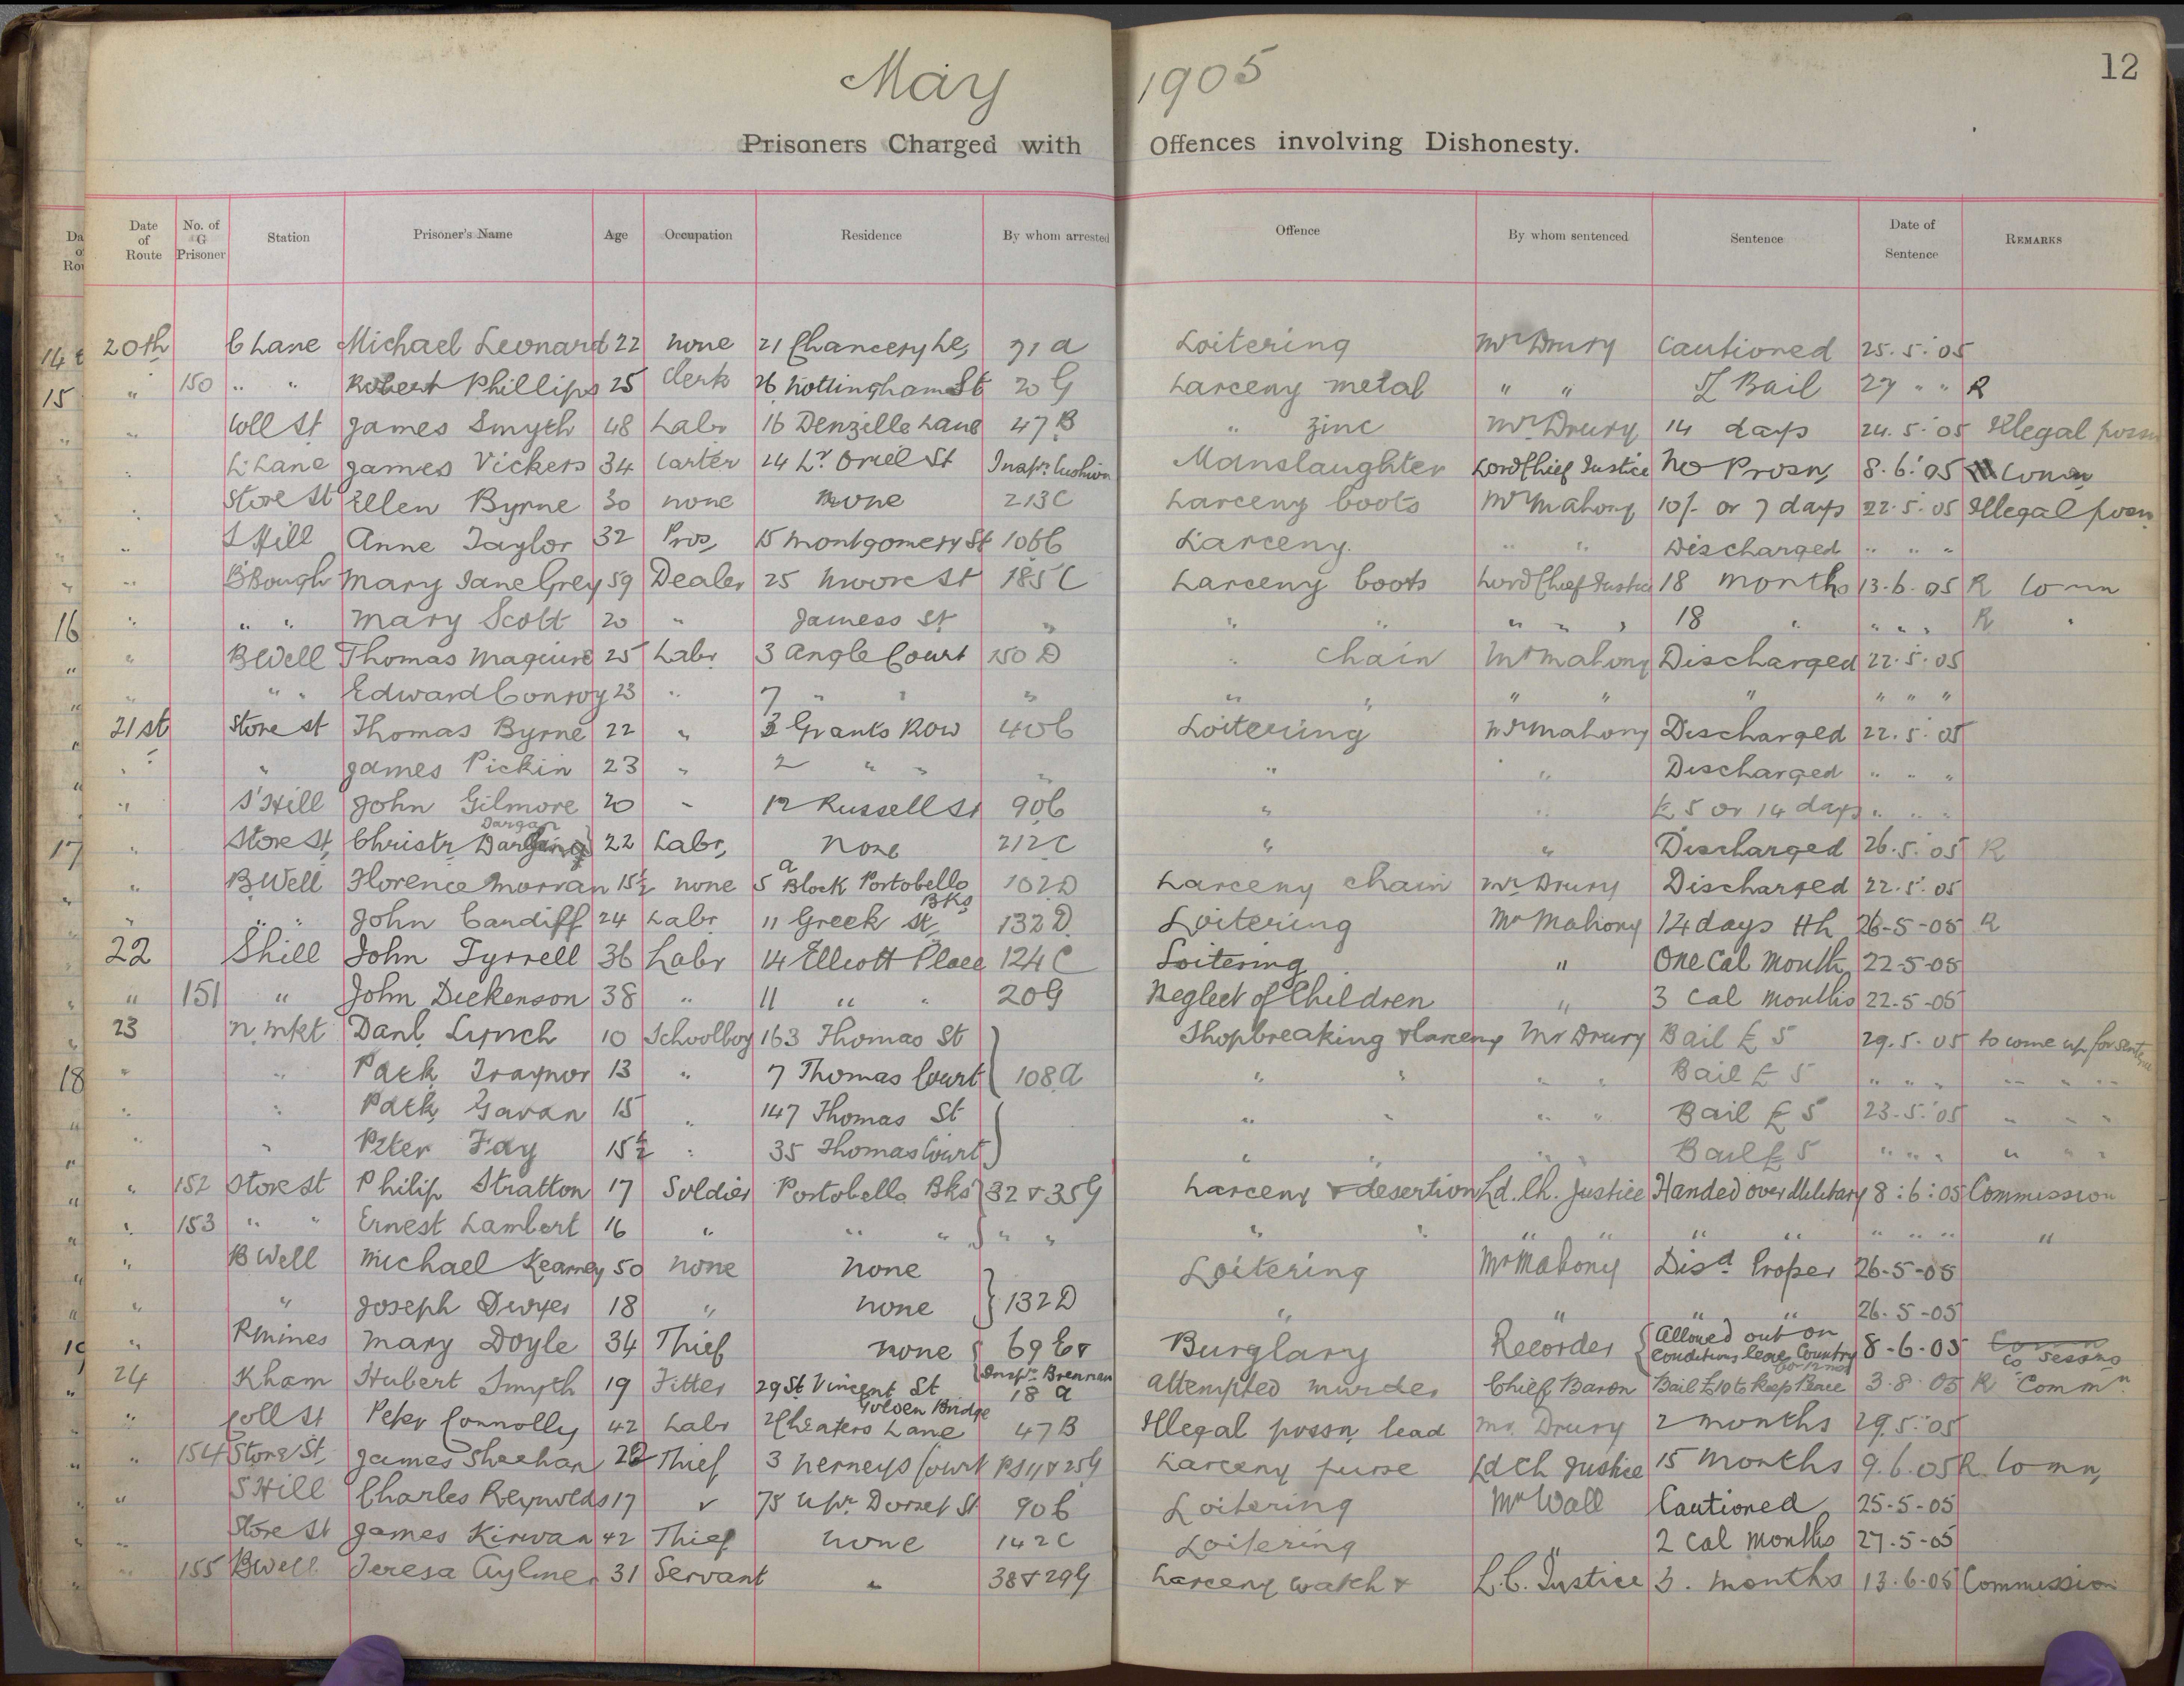 May 1905
12
Prisoners Charged with Offences involving Dishonesty.
Date of Route | No. of G Prisoner | Station | Prisoner's Name | Age | Occupation | Residence | By whom arrested | Offence | By whom sentenced | Sentence | Date of Sentence | Remarks
20th C Lane Michael Leonard 22 none 21 Chancery Le, 71 a Loitering Mr Drury Cautioned 25.5.05
" 150 " " Robert Phillips 25 Clerk 26 Nottingham St 20 G Larceny metal " " Bail 27 " " R
" Coll St James Smyth 48 Labr 16 Denzille Lane 47 B " zinc Mr Drury 14 days 24.5.05 Illegal possn
" L. Lane James Vickers 34 Carter 24 Lr Oriel St Inspr. Manslaughter Lord Chief Justice No Prosn, 8.6.05 Comm
" Store St Ellen Byrne 30 none none 213 C Larceny boots Mr Mahony 10/- or 7 days 22.5.05 Illegal possn
" S Hill Anne Taylor 32 Pros, 15 Montgomery St 106 C Larceny. " " Discharged " " "
" B'Bough Mary Jane Grey 59 Dealer 25 Moore St 185 C Larceny boots Lord Chief Justice 18 months 13.6.05 R Comn
" " " Mary Scott 20 " Jamess St " " " " " " 18 " " " " R "
" BWell Thomas Maguire 25 Labr 3 Angle Court 150 D " chain Mr Mahony Discharged 22.5.05
" " " Edward Conroy 23 " 7 " " " " " " " " " " "
21st Store St Thomas Byrne 22 " 3 Grants Row 40 C Loitering Mr Mahony Discharged 22.5.05
" " James Pickin 23 " 2 " " " " " Discharged " " "
" S'Hill John Gilmore 20 " 12 Russell St 90 C " " £5 or 14 days " " "
" Store St, Christr Dargan 22 Labr, None 212 C " " Discharged 26.5.05 R
" B Well Florence Morran 15½ none 5 a Block Portobello Bks 102 D Larceny chain Mr Drury Discharged 22.5.05
" " " John Cardiff 24 Labr 11 Greek St, 132 D Loitering Mr Mahony 14 days HL 26-5-05 R
22 Shill John Tyrrell 36 Labr 14 Elliott Place 124 C Loitering " One Cal Month 22-5-05
" 151 " John Dickenson 38 " 11 " " 20 G Neglect of Children " 3 Cal Months 22-5-05
23 N. Mkt Danl. Lynch 10 Schoolboy 163 Thomas St Shopbreaking & larceny Mr Drury Bail £5 29.5.05 to come up for sentence
" " Patk Traynor 13 " 7 Thomas Court 108 a " " " " Bail £5 " " " " " "
" " Patk Gavan 15 " 147 Thomas St " " " " Bail £5 23.5.05 " " "
" " Peter Fay 15½ " 35 Thomas Court " " " " Bail £5 " " " " " "
" 152 Store St Philip Stratton 17 Soldier Portobello Bks 32 & 35 G Larceny & desertion Ld. Ch. Justice Handed over Military 8:6:05 Commission
" 153 " " Ernest Lambert 16 " " " " " " " " " " " " " " "
" B Well Michael Kearney 50 none none Loitering Mr Mahony Disd Proper 26-5-05
" " Joseph Dwyer 18 " none 132 D " " " " 26-5-05
" Rmines Mary Doyle 34 Thief none 69 E & Inspr. Brennan Burglary Recorder Allowed out on conditions leave Country 8-6-05 Comm Co Sesns
24 Kham Hubert Smyth 19 Fitter 29 St Vincent St Golden Bridge 18 a Attempted murder Chief Baron Bail £10 to keep Peace 3.8.05 R Commn.
" Coll St Peter Connolly 42 Labr Lane 47 B Illegal possn, lead Mr. Drury 2 months 29.5.05
" 154 Store St, James Sheehan Thief 3 Nerneys Court PS 11 & 25 G Larceny purse Ld Ch Justice 15 months 9.6.05 R. Comn,
" S Hill Charles Reynolds 17 " 75 Upr. Dorset St 90 C Loitering Mr Wall Cautioned 25-5-05
" Store St James Kirwan 42 Thief none 142 C Loitering " 2 Cal Months 27-5-05
" 155 Bwell Teresa Aylmer 31 Servant " 38 & 29 G Larceny watch & L.C. Justice 3. months 13.6.05 Commission